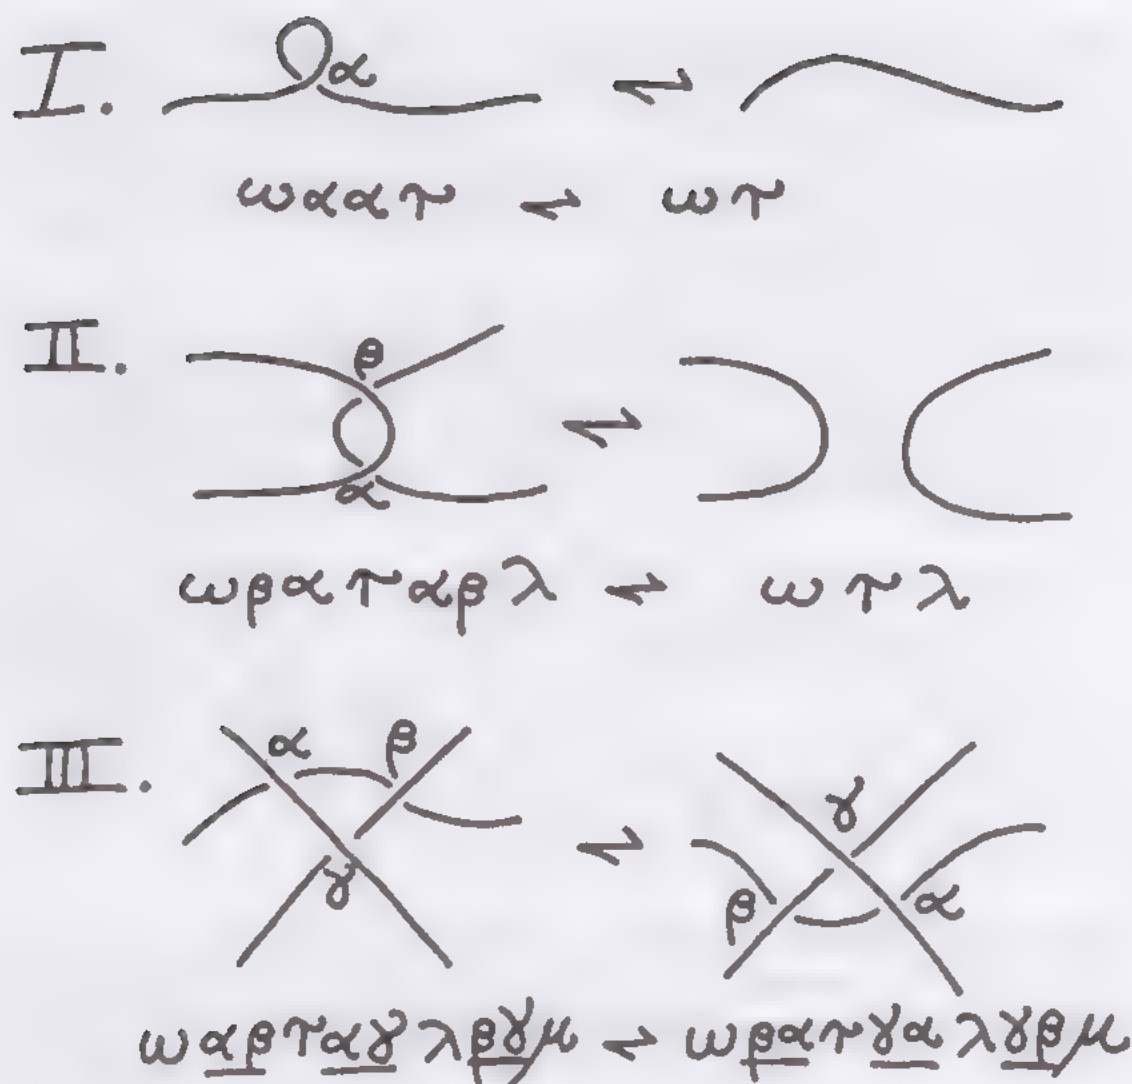 I. α ⇌
ωαατ ⇌ ωτ
II. β ⇌
α
ωβατ αβλ ⇌ ωτλ
III. α β ⇌ γ
γ β α
ωαβταγλβγμ ⇌ ωβατγαλγβμ